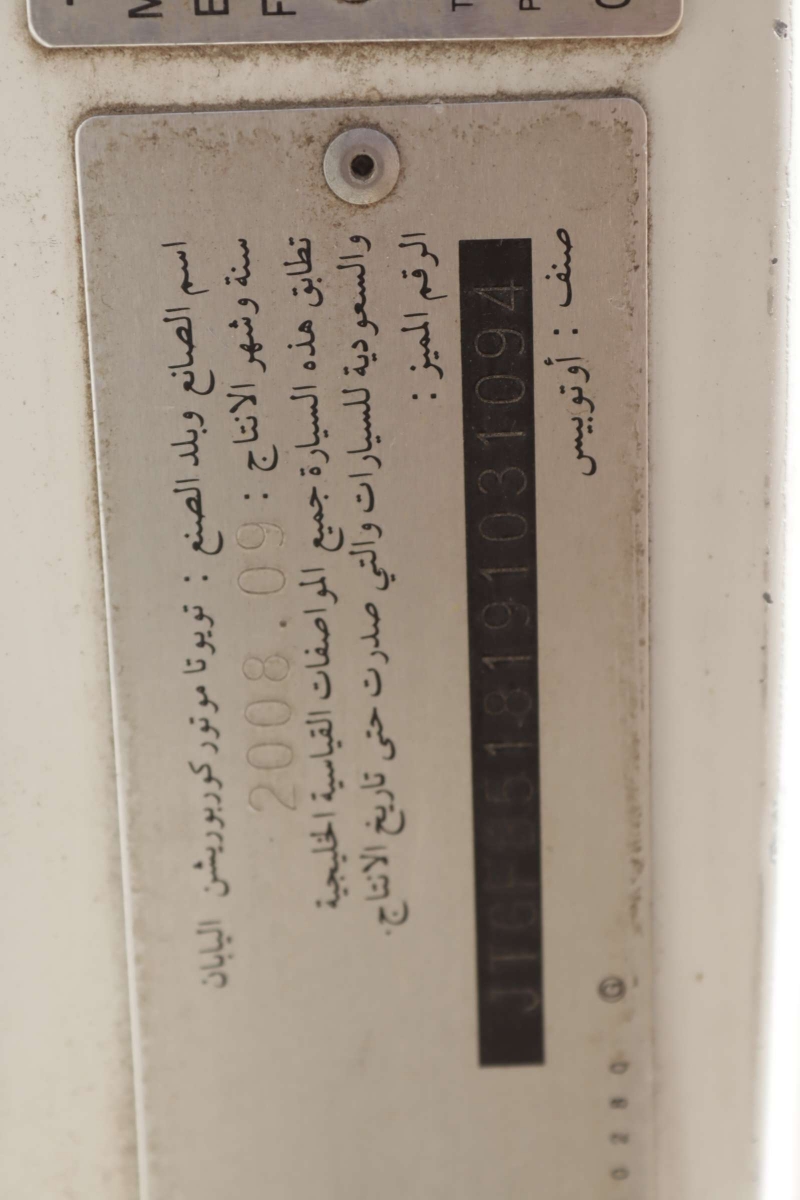 اسم الصانع وبلد الصنع : تويوتا موتور كوربوريشن اليابان
سنة وشهر الانتاج : 2008.09
تطابق هذه السيارة جميع المواصفات القياسية الخليجية
والسعودية للسيارات والتي صدرت حتى تاريخ الانتاج.
الرقم المميز :
JTGFB518191031094
صنف : أوتوبيس
0280 G